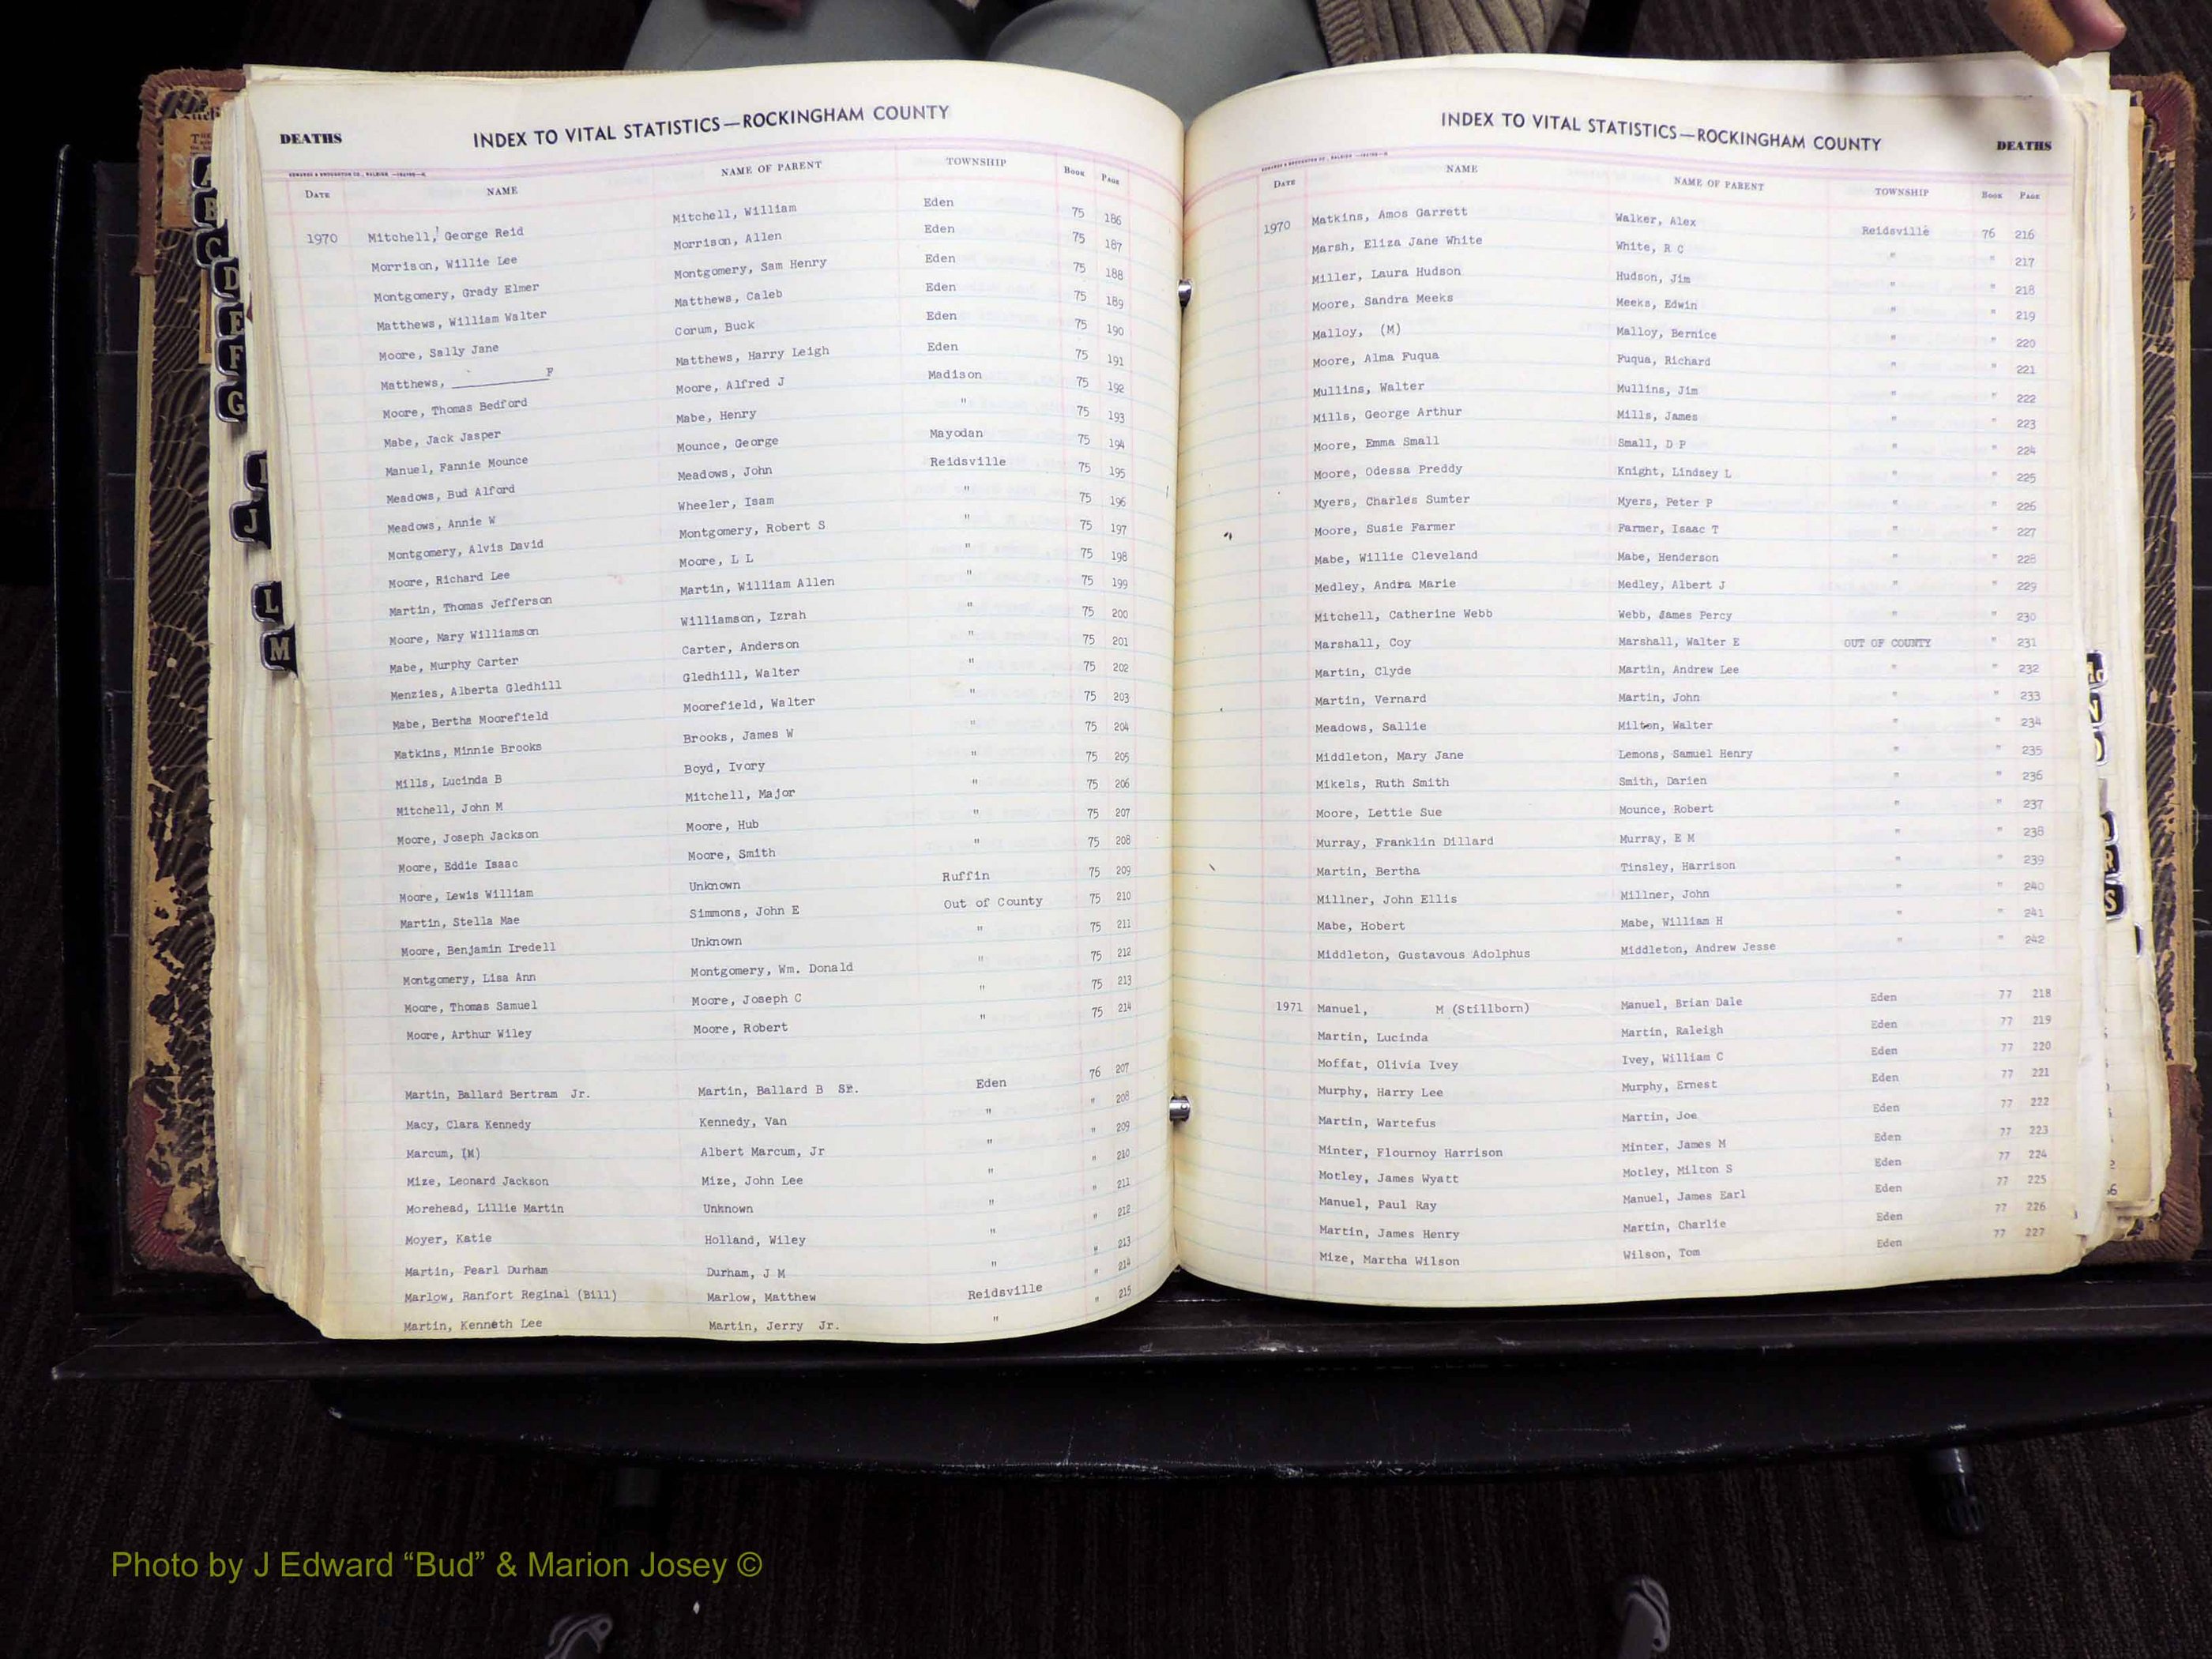 DEATHS INDEX TO VITAL STATISTICS—ROCKINGHAM COUNTY
DATE NAME NAME OF PARENT TOWNSHIP BOOK PAGE
1970 Mitchell, George Reid Mitchell, William Eden 75 186
Morrison, Willie Lee Morrison, Allen Eden 75 187
Montgomery, Grady Elmer Montgomery, Sam Henry Eden 75 188
Matthews, William Walter Matthews, Caleb Eden 75 189
Moore, Sally Jane Corum, Buck Eden 75 190
Matthews, ____________F Matthews, Harry Leigh Eden 75 191
Moore, Thomas Bedford Moore, Alfred J Madison 75 192
Mabe, Jack Jasper Mabe, Henry " 75 193
Manuel, Fannie Mounce Mounce, George Mayodan 75 194
Meadows, Bud Alford Meadows, John Reidsville 75 195
Meadows, Annie W Wheeler, Isam " 75 196
Montgomery, Alvis David Montgomery, Robert S " 75 197
Moore, Richard Lee Moore, L L " 75 198
Martin, Thomas Jefferson Martin, William Allen " 75 199
Moore, Mary Williamson Williamson, Izrah " 75 200
Mabe, Murphy Carter Carter, Anderson " 75 201
Menzies, Alberta Gledhill Gledhill, Walter " 75 202
Mabe, Bertha Moorefield Moorefield, Walter " 75 203
Matkins, Minnie Brooks Brooks, James W " 75 204
Mills, Lucinda B Boyd, Ivory " 75 205
Mitchell, John M Mitchell, Major " 75 206
Moore, Joseph Jackson Moore, Hub " 75 207
Moore, Eddie Isaac Moore, Smith " 75 208
Moore, Lewis William Unknown Ruffin 75 209
Martin, Stella Mae Simmons, John E Out of County 75 210
Moore, Benjamin Iredell Unknown " 75 211
Montgomery, Lisa Ann Montgomery, Wm. Donald " 75 212
Moore, Thomas Samuel Moore, Joseph C " 75 213
Moore, Arthur Wiley Moore, Robert " 75 214
Martin, Ballard Bertram Jr. Martin, Ballard B Sr. Eden 76 207
Macy, Clara Kennedy Kennedy, Van " " 208
Marcum, (M) Albert Marcum, Jr " " 209
Mize, Leonard Jackson Mize, John Lee " " 210
Morehead, Lillie Martin Unknown " " 211
Moyer, Katie Holland, Wiley " " 212
Martin, Pearl Durham Durham, J M " " 213
Marlow, Ranfort Reginal (Bill) Marlow, Matthew Reidsville " 214
Martin, Kenneth Lee Martin, Jerry Jr. " " 215
INDEX TO VITAL STATISTICS—ROCKINGHAM COUNTY DEATHS
DATE NAME NAME OF PARENT TOWNSHIP BOOK PAGE
1970 Matkins, Amos Garrett Walker, Alex Reidsville 76 216
Marsh, Eliza Jane White White, R C " " 217
Miller, Laura Hudson Hudson, Jim " " 218
Moore, Sandra Meeks Meeks, Edwin " " 219
Malloy, (M) Malloy, Bernice " " 220
Moore, Alma Fuqua Fuqua, Richard " " 221
Mullins, Walter Mullins, Jim " " 222
Mills, George Arthur Mills, James " " 223
Moore, Emma Small Small, D P " " 224
Moore, Odessa Preddy Knight, Lindsey L " " 225
Myers, Charles Sumter Myers, Peter P " " 226
Moore, Susie Farmer Farmer, Isaac T " " 227
Mabe, Willie Cleveland Mabe, Henderson " " 228
Medley, Andra Marie Medley, Albert J " " 229
Mitchell, Catherine Webb Webb, James Percy " " 230
Marshall, Coy Marshall, Walter E OUT OF COUNTY " 231
Martin, Clyde Martin, Andrew Lee " " 232
Martin, Vernard Martin, John " " 233
Meadows, Sallie Milton, Walter " " 234
Middleton, Mary Jane Lemons, Samuel Henry " " 235
Mikels, Ruth Smith Smith, Darien " " 236
Moore, Lettie Sue Mounce, Robert " " 237
Murray, Franklin Dillard Murray, E M " " 238
Martin, Bertha Tinsley, Harrison " " 239
Millner, John Ellis Millner, John " " 240
Mabe, Hobert Mabe, William H " " 241
Middleton, Gustavous Adolphus Middleton, Andrew Jesse " " 242
1971 Manuel, M (Stillborn) Manuel, Brian Dale Eden 77 218
Martin, Lucinda Martin, Raleigh Eden 77 219
Moffat, Olivia Ivey Ivey, William C Eden 77 220
Murphy, Harry Lee Murphy, Ernest Eden 77 221
Martin, Wartefus Martin, Joe Eden 77 222
Minter, Flournoy Harrison Minter, James M Eden 77 223
Motley, James Wyatt Motley, Milton S Eden 77 224
Manuel, Paul Ray Manuel, James Earl Eden 77 225
Martin, James Henry Martin, Charlie Eden 77 226
Mize, Martha Wilson Wilson, Tom Eden 77 227
A
B
C
D
E
F
G
I
J
L
M
N
R
S
Photo by J Edward “Bud” & Marion Josey ©